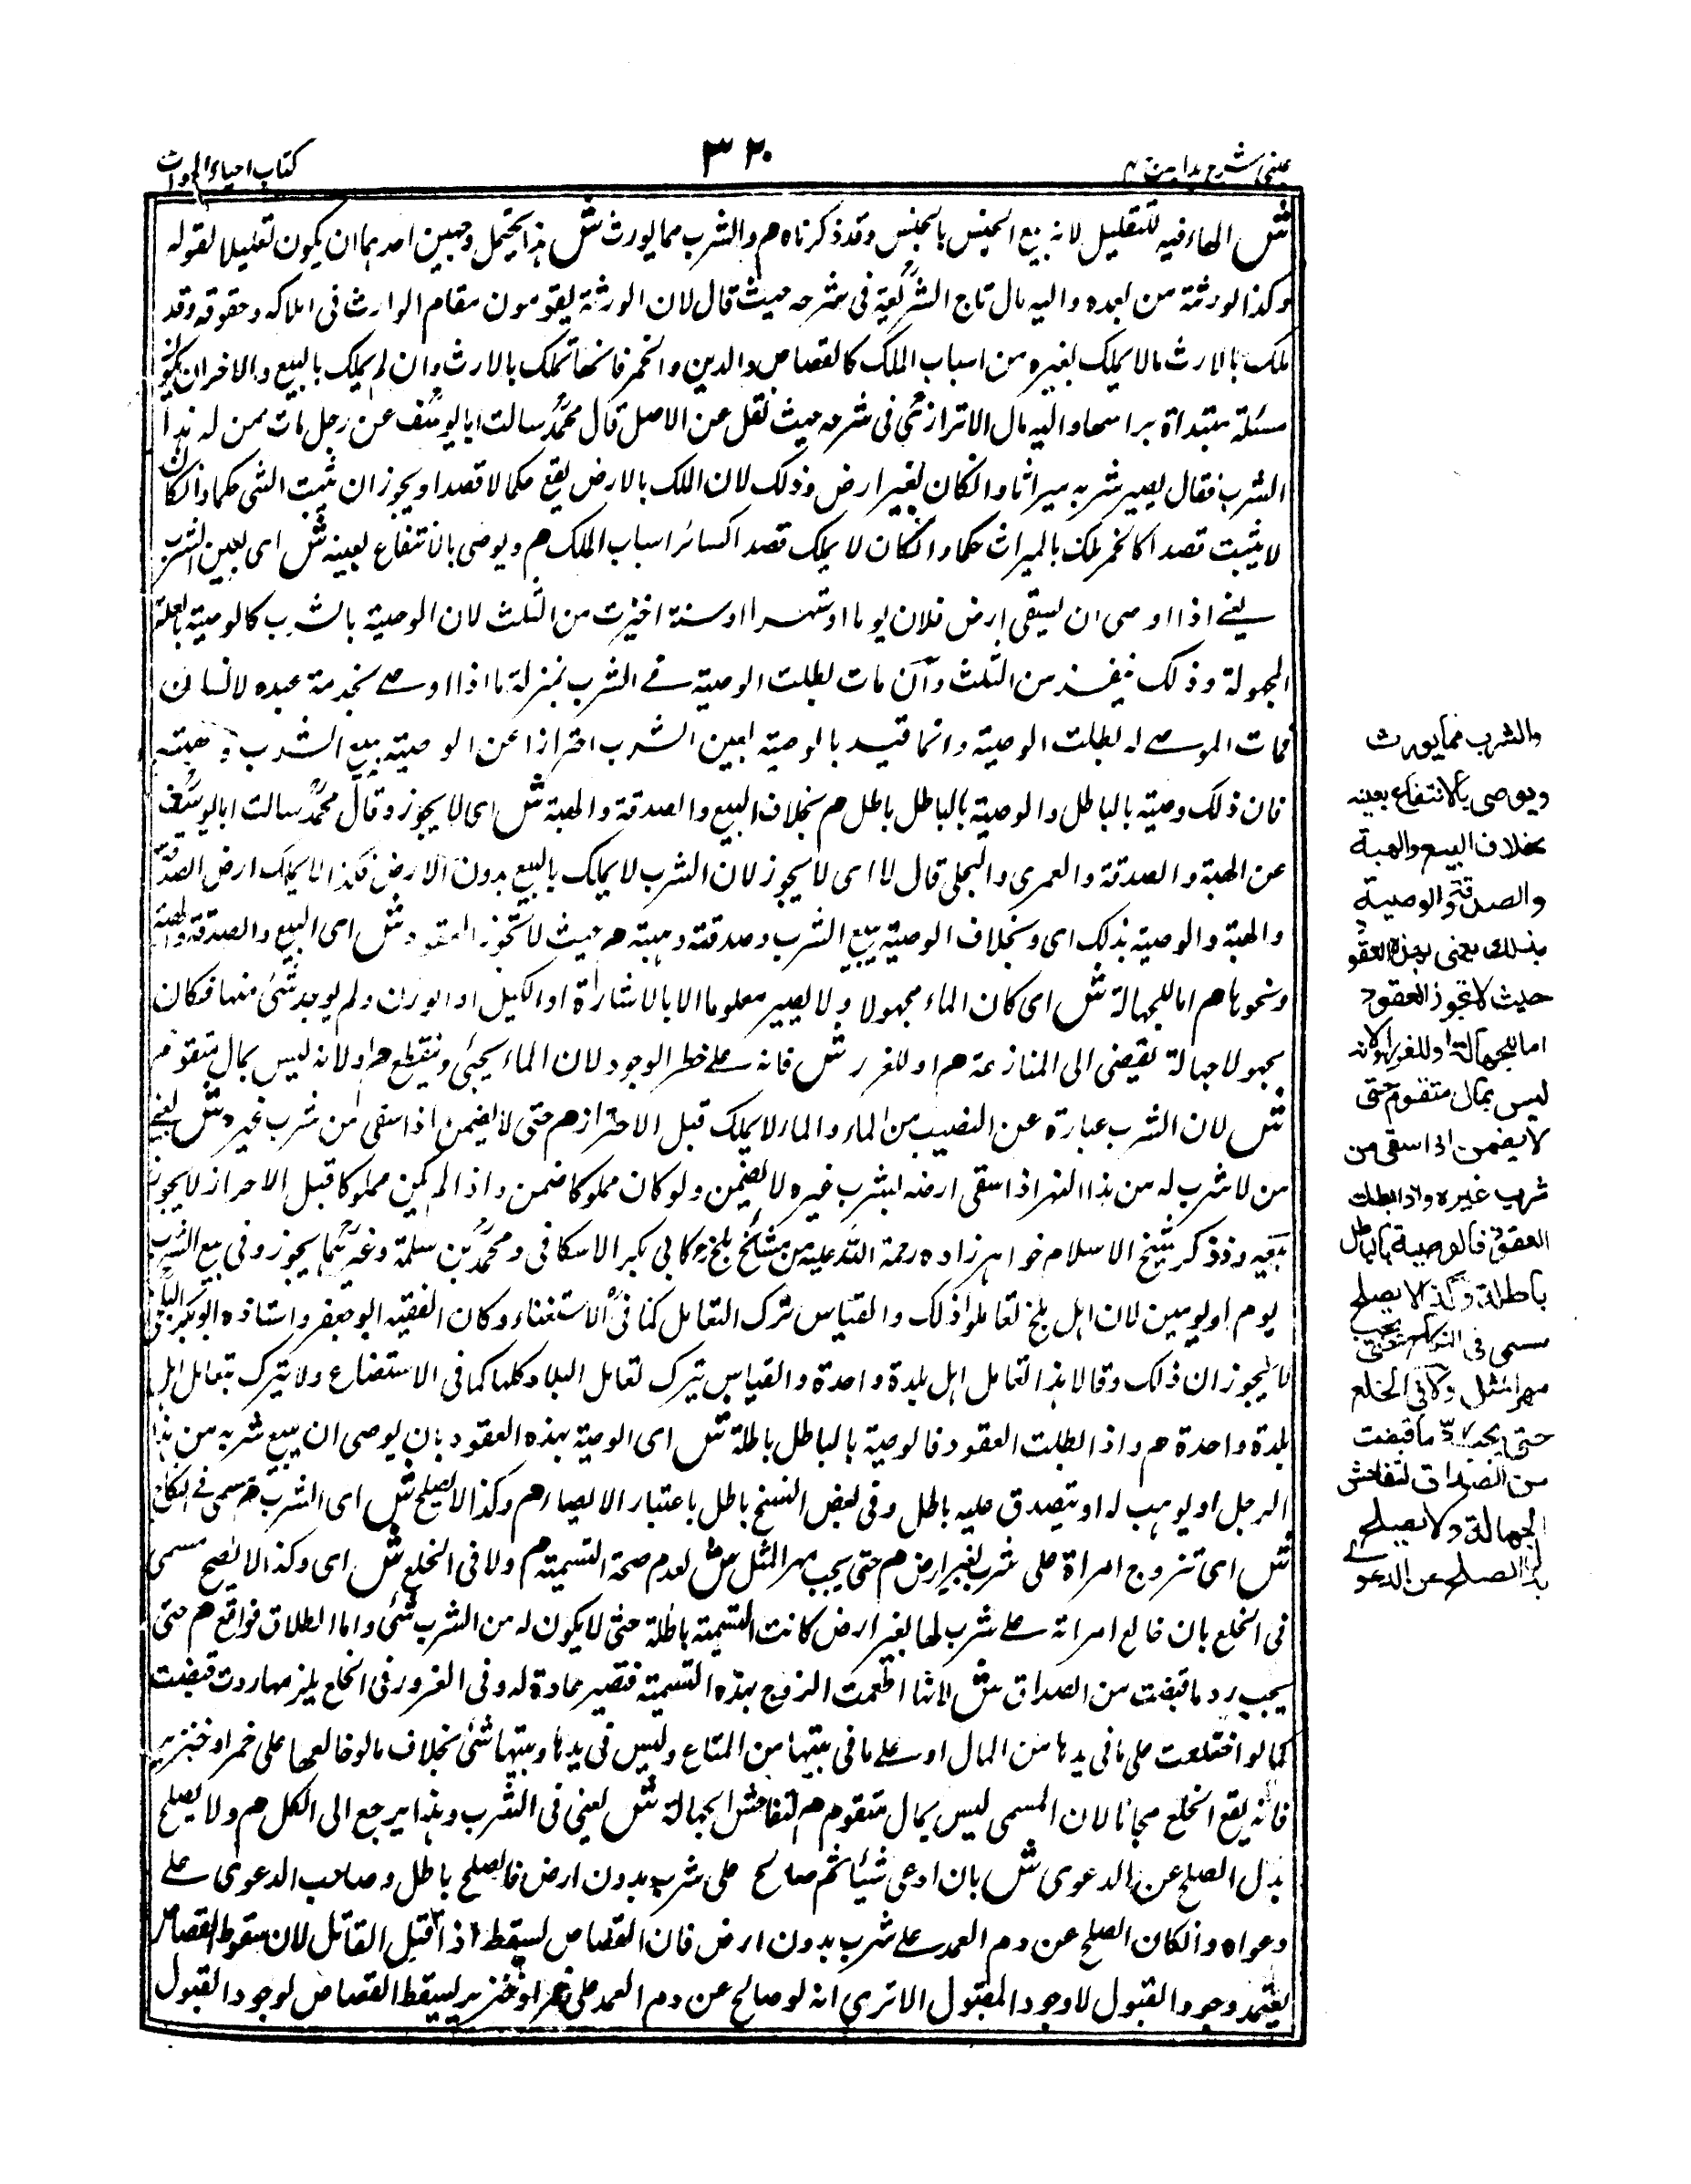 عینی شرح ہدایہ ج ۴
۳۲۰
کتاب احیاء الموات
ش الماء فیہ للتقلیل لانہ بیع الجنس بالجنس وقد ذکرناہ م والشرب مما یورث ش ہذا یحتمل وجہین احدہما ان یکون تعلیلا لقولہ
وکذا لورثتہ من بعدہ والیہ مال تاج الشریعۃ فی شرحہ حیث قال لان الورثۃ یقومون مقام الوارث فی املاکہ وحقوقہ وقد
یملک بالارث مالا یملک بغیرہ من اسباب الملک کالقصاص والدین والخمر فانہا تملک بالارث وان لم یملک بالبیع والاخر ان یکون
مسئلۃ مبتداۃ براسہا والیہ مال الاترازی فی شرحہ حیث نقل عن الاصل قال محمد سالت ابا یوسف عن رجل مات ممن لہ ہذا
الشرب فقال یصیر شربہ میراثا وان کان بغیر ارض وذلک لان الملک بالارض یقع حکما لا قصدا ویجوز ان یثبت الشی حکما وان کان
لا یثبت قصدا کالخمر یملک بالمیراث حکما وان کان لا یملک قصدا کسائر اسباب الملک م ویوصی بالانتفاع بعینہ ش ای بعین الشرب
یعنے اذا اوصی ان یسقی ارض فلان یوما او شہرا او سنۃ اخیزت من الثلث لان الوصیۃ بالشرب کالوصیۃ بالغلۃ
المجہولۃ وذلک ینفذ من الثلث وان مات بطلت الوصیۃ فے الشرب بمنزلۃ ما اذا اوصے بخدمۃ عبدہ لانسان
فمات الموصے لہ بطلت الوصیۃ وانما قید بالوصیۃ بعین الشرب احترازا عن الوصیۃ ببیع الشرب وہبتہ
فان ذلک وصیۃ بالباطل والوصیۃ بالباطل باطل م بخلاف البیع والصدقۃ والہبۃ ش ای لا یجوز وقال محمد سالت ابا یوسف
عن الہبۃ والصدقۃ والعمری والنحلی قال لا ای لا یجوز لان الشرب لا یملک بالبیع بدون الارض فکذا لا یملک ارض الصدقۃ
والہبۃ والوصیۃ بذلک ای وبخلاف الوصیۃ ببیع الشرب وصدقتہ وہبتہ م حیث لا تجوز العقود ش ای البیع والصدقۃ والہبۃ
ونحوہا م اما للجہالۃ ش ای کان الماء مجہولا ولا یصیر معلوما الا بالاشارۃ او الکیل او الوزن ولم یوجد شئ منہا فکان
مجہولا جہالۃ یفضی الی المنازعۃ م او للغرر ش فانہ علے خطر الوجود لان الماء یجئ وینقطع م او لانہ لیس بمال متقوم
ش لان الشرب عبارۃ عن النصیب من الماء والماء لا یملک قبل الاحتراز م حتی لا یضمن اذا سقی من شرب غیرہ ش یعنے
من لا شرب لہ من ہذا النہر اذا سقی ارضہ بشرب غیرہ لا یضمن ولو کان مملوکا ضمن واذا لم یکن مملوکا قبل الاحراز لا یجوز
بیعہ وذکر شیخ الاسلام خواہر زادہ رحمۃ اللہ علیہ من مشائخ بلخ کابی بکر الاسکافی ومحمد بن سلمۃ وغیرہما یجوز وفی بیع الشرب
یوم او یومین لان اہل بلخ تعاملوا ذلک والقیاس ترک التعامل کما فی الاستغناء وکان الفقیہ ابو جعفر واستاذہ ابو بکر البلخی
لا یجوزان ذلک وقالا ہذا تعامل اہل بلدۃ واحدۃ والقیاس یترک لتعامل البلاد کلہا کما فی الاستضاع ولا یترک بتعامل اہل
بلدۃ واحدۃ م واذا بطلت العقود فالوصیۃ بالباطل باطلۃ ش ای الوصیۃ بہذہ العقود بان یوصی ان یبیع شربہ من ہذا
الرجل او یوہب لہ او یتصدق علیہ باطل وفی بعض النسخ باطل باعتبار الایصار م وکذا لا یصلح ش ای الشرب م مسمی فے النکاح
ش ای تزوج امراۃ علی شرب بغیر ارض م حتی یجب مہر المثل ش لعدم صحۃ التسمیۃ م ولا فی الخلع ش ای وکذا لا یصح مسمی
فی الخلع بان خالع امراتہ علے شرب لہا بغیر ارض کانت التسمیۃ باطلۃ حتی لا یکون لہ من الشرب شئ واما الطلاق فواقع م حتی
یجب رد ما قبضت من الصداق ش لانہا اطمعت الزوج بہذہ التسمیۃ فتصیر غارۃ لہ وفی الغرور فی الخلع یلزمہا رد ما قبضت
کما لو اختلعت علی ما فی یدہا من المال او علے ما فی بیتہا من المتاع ولیس فی یدہا وبیتہا شئ بخلاف ما لو خالعہا علی خمر او خنزیر
فانہ یقع الخلع مجانا لان المسمی لیس بمال متقوم م لتفاحش الجہالۃ ش یعنی فی الشرب وہذا یرجع الی الکل م ولا یصلح
بدل الصلح عن الدعوی ش بان ادعی شیئا ثم صالح علی شرب بدون ارض فالصلح باطل وصاحب الدعوی علے
دعواہ وان کان الصلح عن دم العمد علے شرب بدون ارض فان القصاص یسقط اذا قبل القاتل لان سقوط القصاص
یعتمد وجود القبول لا وجود المقبول الا تری انہ لو صالح عن دم العمد علی خمر او خنزیر یسقط القصاص لوجود القبول
والشرب مما یورث
ویوصی بالانتفاع بعینہ
بخلاف البیع والھبۃ
والصدقۃ والوصیۃ
بذلك یعنی بہذہ العقو
حیث لا تجوز العقود
اما للجھالۃ او للغرر او لانہ
لیس بمال متقوم حتی
لا یضمن اذا سقی من
شرب غیرہ واذا بطلت
العقود فالوصیۃ بالباطل
باطلۃ وکذا لا یصلح
مسمی فی النکاح حتی یجب
مھر المثل ولا فی الخلع
حتی یجب رد ما قبضت
من الصداق لتفاحش
الجھالۃ ولا یصلح
بدل الصلح عن الدعوے